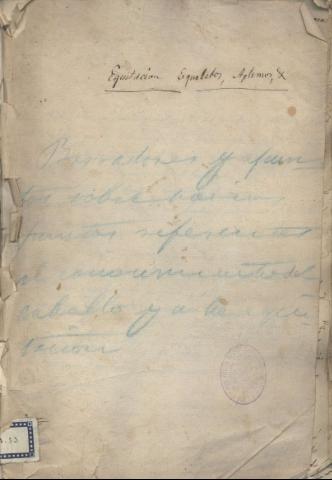 Equitación Esqueletos, Aplomos, &
Borradores y apun-
tos sobre varios
puntos referentes
al conocimiento del
caballo y a la equi-
tacion